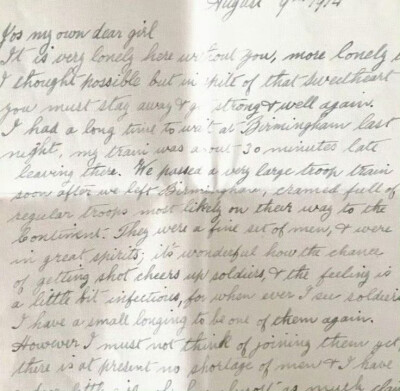 August 9th 1914
Yos my own dear girl
It is very lonely here without you, more lonely
I thought possible but in spite of that sweetheart
you must stay away & get strong & well again.
I had a long time to wait at Birmingham last
night, my train was about 30 minutes late
leaving there. We passed a very large troop train
soon after we left Birmingham, cramed full of
regular troops most likely on their way to the
Continent. They were a fine set of men, & were
in great spirits; it's wonderful how the chance
of getting shot cheers up soldiers, & the feeling is
a little bit infectious, for when ever I see soldiers
I have a small longing to be one of them again.
However I must not think of joining them yet,
there is at present no shortage of men & I have